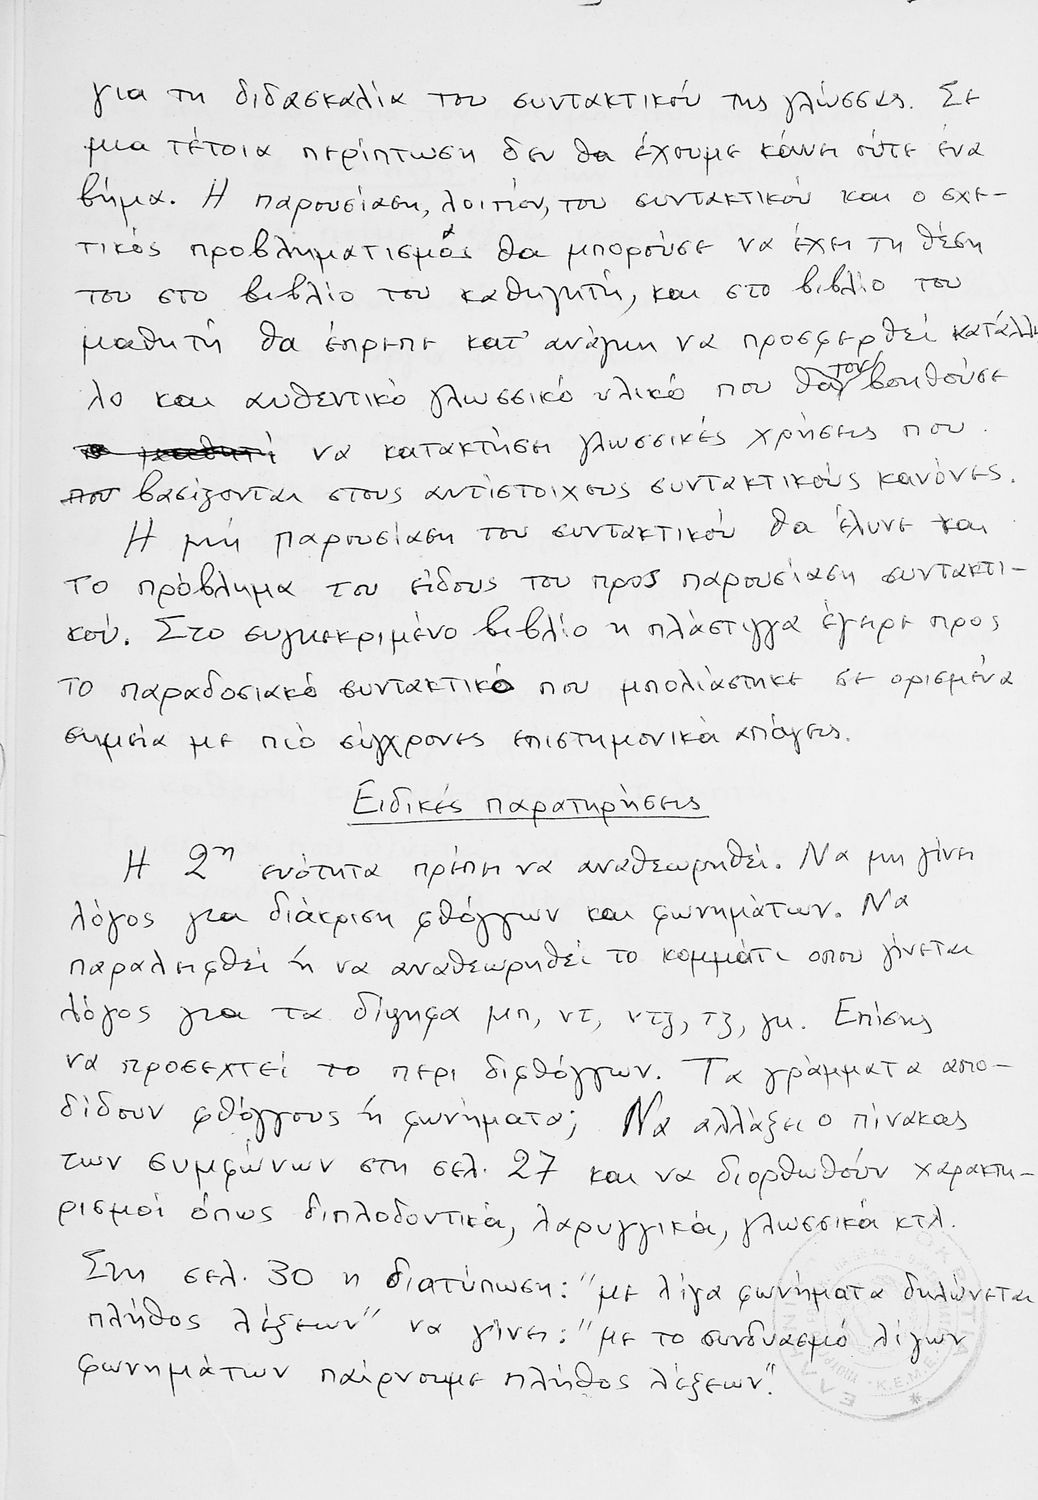 για τη διδασκαλία του συντακτικού της γλώσσας. Σε
μια τέτοια περίπτωση δεν θα έχουμε κάνει ούτε ένα
βήμα. Η παρουσίαση, λοιπόν, του συντακτικού και ο σχε-
τικός προβληματισμός θα μπορούσε να έχει τη θέση
του στο βιβλίο του καθηγητή, και στο βιβλίο του
μαθητή θα έπρεπε κατ' ανάγκη να προσφερθεί κατάλλη
λο και αυθεντικό γλωσσικό υλικό που θα τον βοηθούσε
να κατακτήσει γλωσσικές χρήσεις που
βασίζονται στους αντίστοιχους συντακτικούς κανόνες.
Η μή παρουσίαση του συντακτικού θα έλυνε και
το πρόβλημα του είδους του προς παρουσίαση συντακτι-
κού. Στο συγκεκριμένο βιβλίο η πλάστιγγα έγειρε προς
το παραδοσιακό συντακτικό που μπολιάστηκε σε ορισμένα
σημεία με πιό σύγχρονες επιστημονικά απόψεις.
Ειδικές παρατηρήσεις
Η 2η ενότητα πρέπει να αναθεωρηθεί. Να μη γίνει
λόγος για διάκριση φθόγγων και φωνημάτων. Να
παραλειφθεί ή να αναθεωρηθεί το κομμάτι οπου γίνεται
λόγος για τα δίψηφα μπ, ντ, ντζ, τζ, γκ. Επίσης
να προσεχτεί το περι διφθόγγων. Τα γράμματα απο-
δίδουν φθόγγους ή φωνήματα; Να αλλάξει ο πίνακας
των συμφώνων στη σελ. 27 και να διορθωθούν χαρακτη-
ρισμοί όπως διπλοδοντικά, λαρυγγικά, γλωσσικά κτλ.
Στη σελ. 30 η διατύπωση: "με λίγα φωνήματα δηλώνεται
πλήθος λέξεων" να γίνει: "με το συνδυασμό λίγων
φωνημάτων παίρνουμε πλήθος λέξεων."